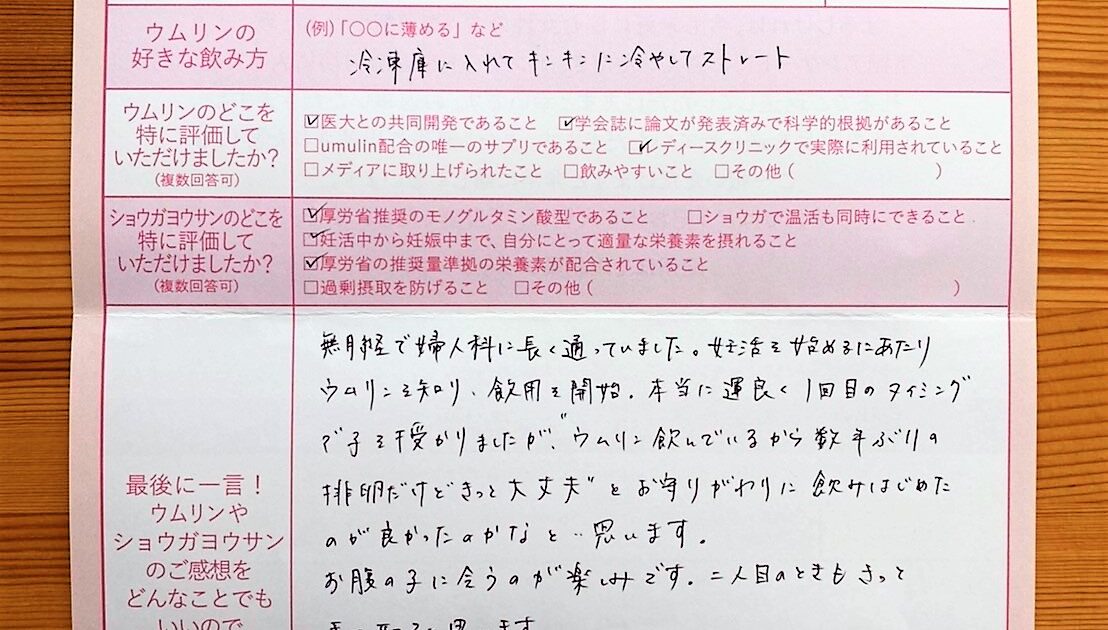 ウムリンの
好きな飲み方
(例)「〇〇に薄める」など
冷凍庫に入れてキンキンに冷やしてストレート
ウムリンのどこを
特に評価して
いただけましたか?
(複数回答可)
☑医大との共同開発であること ☑学会誌に論文が発表済みで科学的根拠があること
☐umulin配合の唯一のサプリであること ☑レディースクリニックで実際に利用されていること
☐メディアに取り上げられたこと ☐飲みやすいこと ☐その他( )
ショウガヨウサンのどこを
特に評価して
いただけましたか?
(複数回答可)
☑厚労省推奨のモノグルタミン酸型であること ☐ショウガで温活も同時にできること
☑妊活中から妊娠中まで、自分にとって適量な栄養素を摂れること
☑厚労省の推奨量準拠の栄養素が配合されていること
☐過剰摂取を防げること ☐その他( )
最後に一言!
ウムリンや
ショウガヨウサン
のご感想を
どんなことでも
いいので
無月経で婦人科に長く通っていました。妊活を始めるにあたり
ウムリンを知り、飲用を開始。本当に運良く1回目のタイミング
で子を授かりましたが、"ウムリン飲んでいるから数年ぶりの
排卵だけどきっと大丈夫"とお守りがわりに飲みはじめた
のが良かったのかなと…思います。
お腹の子に会うのが楽しみです。二人目のときもきっと